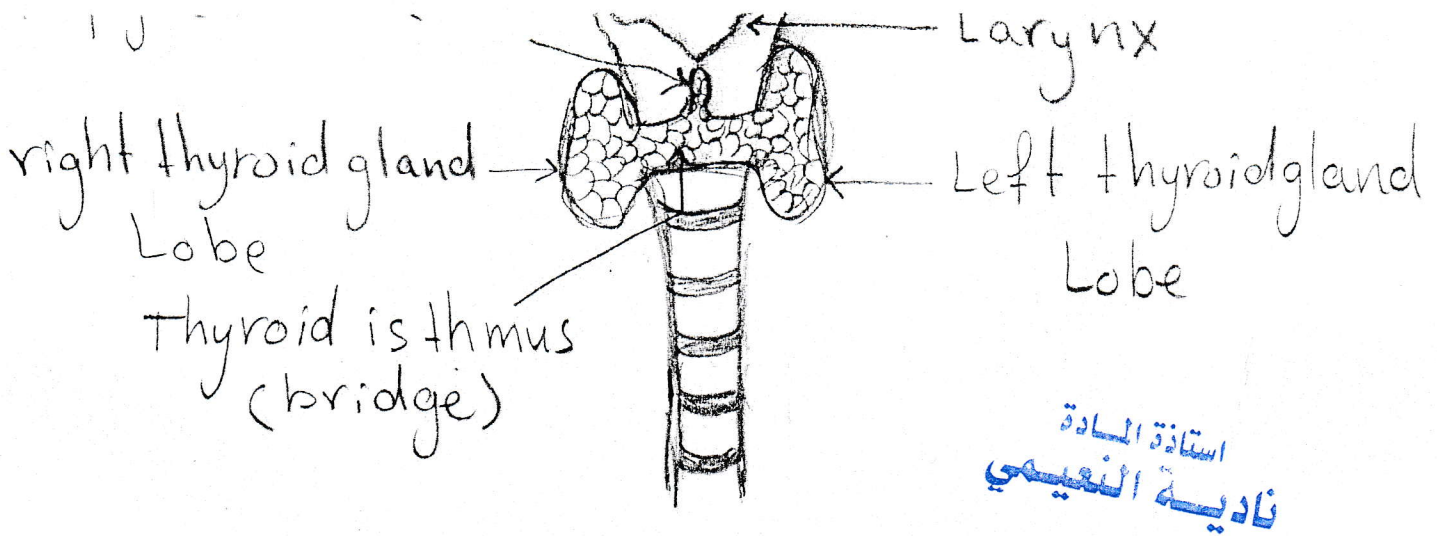 Larynx
right thyroid gland
Lobe
Left thyroid gland
Lobe
Thyroid isthmus
(bridge)
استاذة المادة
نادية النعيمي